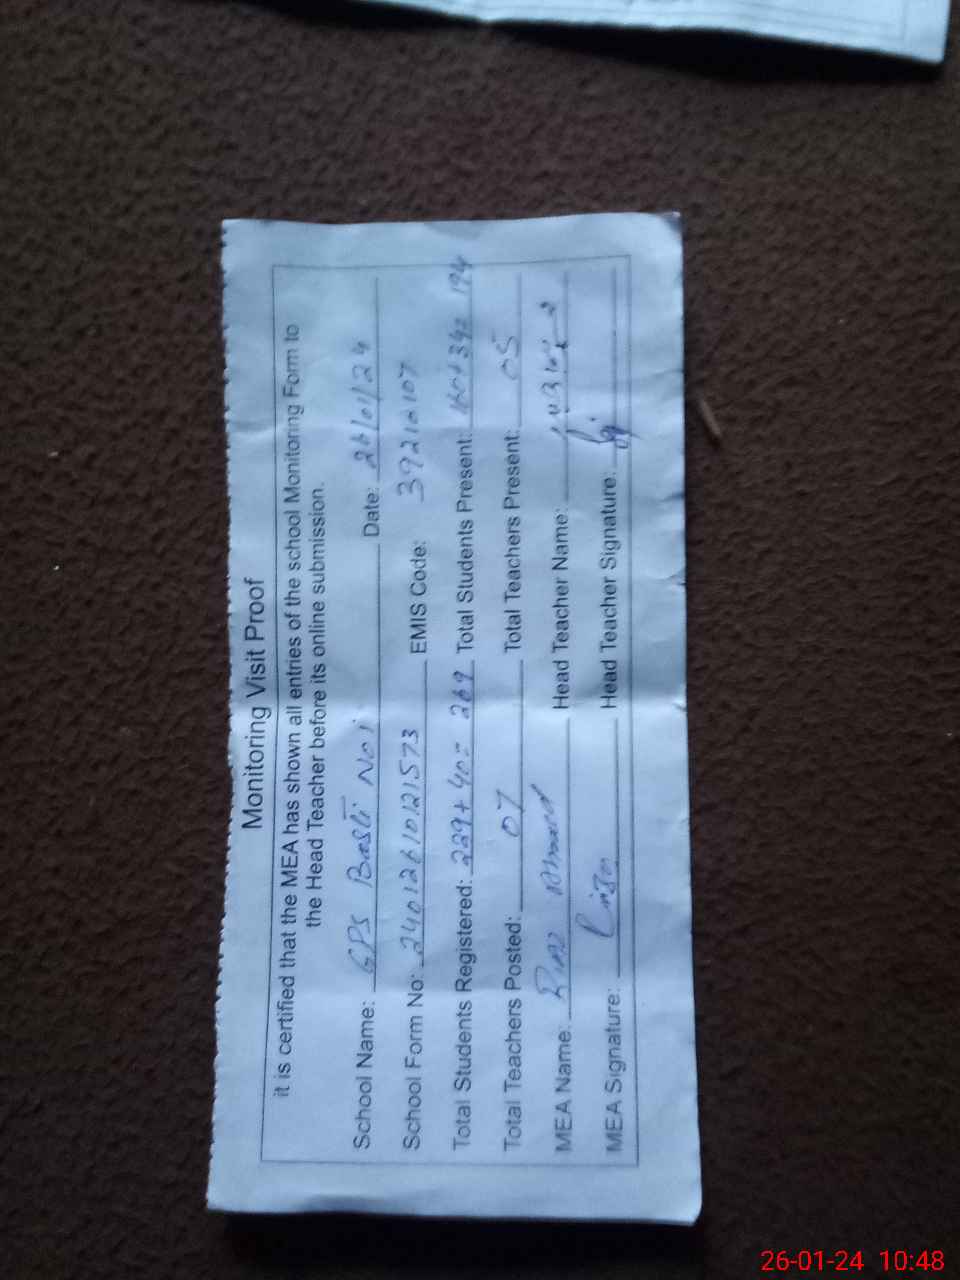 Monitoring Visit Proof
it is certified that the MEA has shown all entries of the school Monitoring Form to
the Head Teacher before its online submission.
School Name: GPS Basti No 1 Date: 26/01/24
School Form No: 24012610121573 EMIS Code: 39210107
Total Students Registered: 229+40= 269 Total Students Present: 160+34= 194
Total Teachers Posted: 07 Total Teachers Present: 05
MEA Name: Riaz Ahmad Head Teacher Name:
MEA Signature: Head Teacher Signature:
26-01-24 10:48